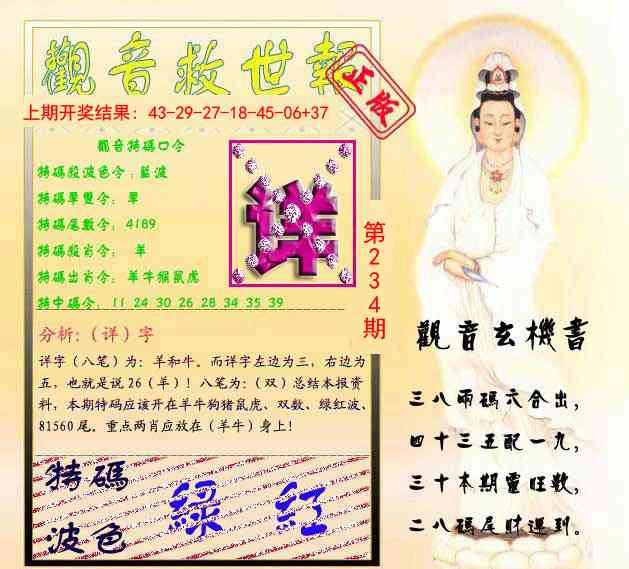 觀音救世報
正版
上期开奖结果：43-29-27-18-45-06+37
觀音特碼口令
特碼殺波色令：藍波
特碼單雙令：單
特碼尾數令：4189
特碼殺肖令： 羊
特碼出肖令：羊牛猴鼠虎
特中碼令： 11 24 30 26 28 34 35 39
详
第234期
分析：（详）字
详字（八笔）为：羊和牛。而详字左边为三，右边为
五，也就是说 26（羊）！八笔为：（双）总结本报资
料，本期特码应该开在羊牛狗猪鼠虎、双数、绿红波、
81560 尾。重点两肖应放在（羊牛）身上！
特碼
波色
綠 紅
觀音玄機書
三八兩碼六合出，
四十三五配一九，
三十本期靈旺数，
二八碼尾財運到。